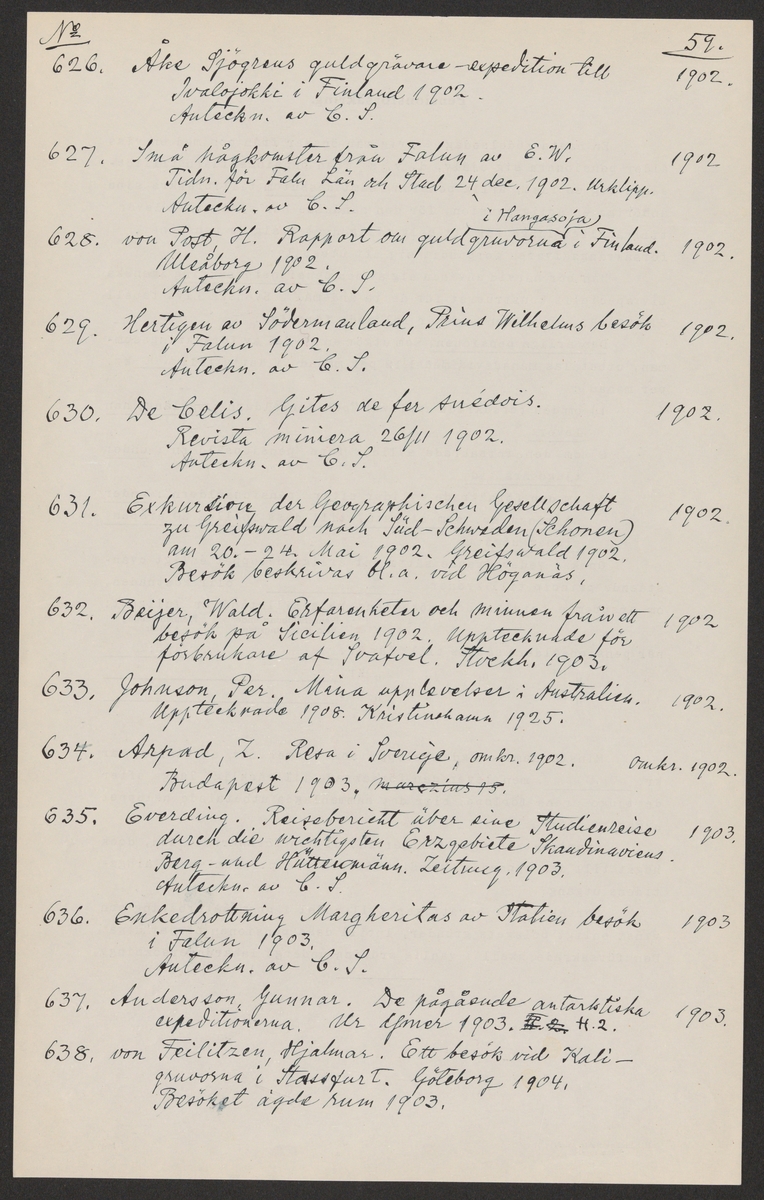 No 59.
626. Åke Sjögrens guldgrävare-expedition till 1902.
Ivalojokki i Finland 1902.
Anteckn. av C. S.
627. Små hågkomster från Falun av E. W. 1902
Tidn. för Falu Län och Stad 24 dec. 1902. Urklipp.
Anteckn. av C. S.
i Hangasoja,
628. von Post, H. Rapport om guldgruvorna i Finland. 1902.
Uleåborg 1902.
Anteckn. av C. S.
629. Hertigen av Södermanland, Prins Wilhelms besök 1902.
i Falun 1902.
Anteckn. av C. S.
630. De Celis. Gites de fer suédois. 1902.
Revista miniera 26/11 1902.
Anteckn. av C. S.
631. Exkursion der Geographischen Gesellschaft 1902.
zu Greifswald nach Süd-Schweden (Schonen)
am 20.-24. Mai 1902. Greifswald 1902.
Besök beskrivas bl. a. vid Höganäs.
632. Beijer, Wald. Erfarenheter och minnen från ett 1902
besök på Sicilien 1902. Upptecknade för
förbrukare af Svafvel. Stockh. 1903.
633. Johnson, Per. Mina upplevelser i Australien. 1902.
Upptecknade 1908. Kristinehamn 1925.
634. Arpad, Z. Resa i Sverige, omkr. 1902. omkr. 1902.
Budapest 1903. marczius 15.
635. Everding. Reisebericht über eine Studienreise 1903.
durch die wichtigsten Erzgebiete Skandinaviens.
Berg- und Hüttenmänn. Zeitung. 1903.
Anteckn. av C. S.
636. Enkedrottning Margheritas av Italien besök 1903
i Falun 1903.
Anteckn. av C. S.
637. Andersson, Gunnar. De pågående antarktiska 1903.
expeditionerna. Ur Ymer 1903. H. 2.
638. von Feilitzen, Hjalmar. Ett besök vid Kali-
gruvorna i Stassfurt. Göteborg 1904.
Besöket ägde rum 1903.